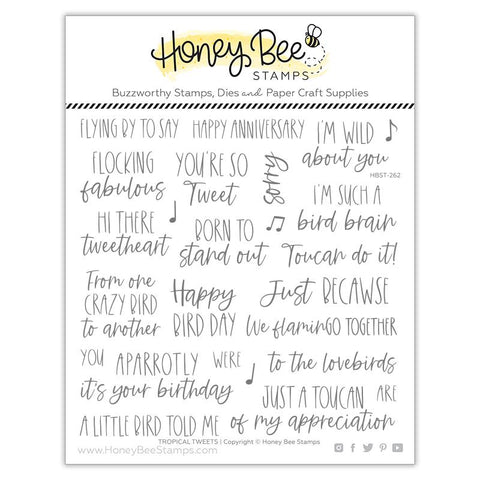 Honey Bee
STAMPS
Buzzworthy Stamps, Dies and Paper Craft Supplies
FLYING BY TO SAY
HAPPY ANNIVERSARY
I'M WILD
about you
HBST-262
FLOCKING
fabulous
YOU'RE SO
Tweet
sorry
I'M SUCH A
bird brain
HI THERE
tweetheart
BORN TO
stand out
Toucan do it!
From one
CRAZY BIRD
to another
Happy
BIRD DAY
Just BECAWSE
We flaminGO TOGETHER
YOU
APARROTLY
WERE
to the lovebirds
it's your birthday
JUST A TOUCAN
ARE
A LITTLE BIRD TOLD ME
of my appreciation
TROPICAL TWEETS | Copyright © Honey Bee Stamps
www.HoneyBeeStamps.com